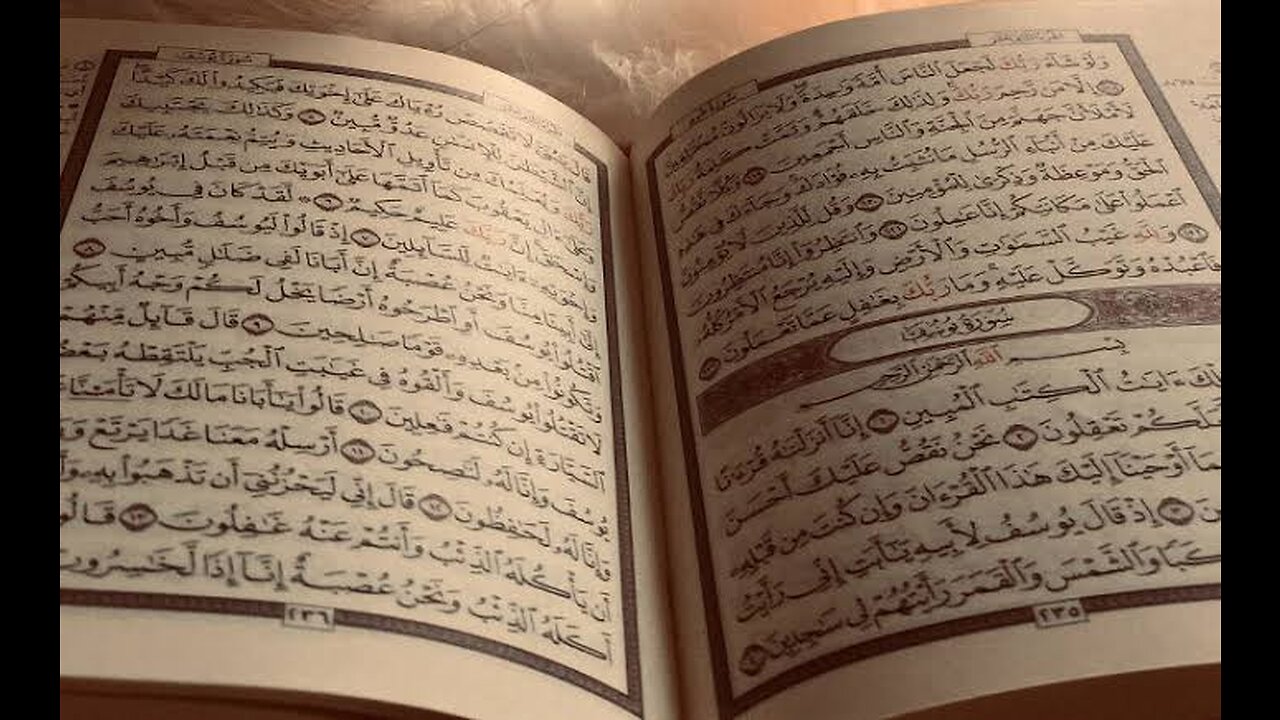 وَلَوْ شَآءَ رَبُّكَ لَجَعَلَ ٱلنَّاسَ أُمَّةً وَٰحِدَةً وَلَا يَزَالُونَ مُخْتَلِفِينَ
١١٨ إِلَّا مَن رَّحِمَ رَبُّكَ وَلِذَٰلِكَ خَلَقَهُمْ وَتَمَّتْ كَلِمَةُ رَبِّكَ
لَأَمْلَأَنَّ جَهَنَّمَ مِنَ ٱلْجِنَّةِ وَٱلنَّاسِ أَجْمَعِينَ ١١٩ وَكُلًّا نَّقُصُّ
عَلَيْكَ مِنْ أَنۢبَآءِ ٱلرُّسُلِ مَا نُثَبِّتُ بِهِۦ فُؤَادَكَ وَجَآءَكَ فِى هَٰذِهِ
ٱلْحَقُّ وَمَوْعِظَةٌ وَذِكْرَىٰ لِلْمُؤْمِنِينَ ١٢٠ وَقُل لِّلَّذِينَ لَا يُؤْمِنُونَ
ٱعْمَلُوا۟ عَلَىٰ مَكَانَتِكُمْ إِنَّا عَٰمِلُونَ ١٢١ وَٱنتَظِرُوٓا۟ إِنَّا مُنتَظِرُونَ
١٢٢ وَلِلَّهِ غَيْبُ ٱلسَّمَٰوَٰتِ وَٱلْأَرْضِ وَإِلَيْهِ يُرْجَعُ ٱلْأَمْرُ كُلُّهُۥ
فَٱعْبُدْهُ وَتَوَكَّلْ عَلَيْهِ وَمَا رَبُّكَ بِغَٰفِلٍ عَمَّا تَعْمَلُونَ ١٢٣
سُورَةُ يُوسُفَ
بِسْمِ ٱللَّهِ ٱلرَّحْمَٰنِ ٱلرَّحِيمِ
تِلْكَ ءَايَٰتُ ٱلْكِتَٰبِ ٱلْمُبِينِ ١ إِنَّآ أَنزَلْنَٰهُ قُرْءَٰنًا
لَّعَلَّكُمْ تَعْقِلُونَ ٢ نَحْنُ نَقُصُّ عَلَيْكَ أَحْسَنَ
بِمَآ أَوْحَيْنَآ إِلَيْكَ هَٰذَا ٱلْقُرْءَانَ وَإِن كُنتَ مِن قَبْلِهِۦ
٣ إِذْ قَالَ يُوسُفُ لِأَبِيهِ يَٰٓأَبَتِ إِنِّى رَأَيْتُ
كَوْكَبًا وَٱلشَّمْسَ وَٱلْقَمَرَ رَأَيْتُهُمْ لِى سَٰجِدِينَ ٤
٢٣٥
سُورَةُ يُوسُفَ
قَالَ يَٰبُنَىَّ لَا تَقْصُصْ رُءْيَاكَ عَلَىٰٓ إِخْوَتِكَ فَيَكِيدُوا۟ لَكَ كَيْدًا
إِنَّ ٱلشَّيْطَٰنَ لِلْإِنسَٰنِ عَدُوٌّ مُّبِينٌ ٥ وَكَذَٰلِكَ يَجْتَبِيكَ
رَبُّكَ وَيُعَلِّمُكَ مِن تَأْوِيلِ ٱلْأَحَادِيثِ وَيُتِمُّ نِعْمَتَهُۥ عَلَيْكَ
وَعَلَىٰٓ ءَالِ يَعْقُوبَ كَمَآ أَتَمَّهَا عَلَىٰٓ أَبَوَيْكَ مِن قَبْلُ إِبْرَٰهِيمَ
وَإِسْحَٰقَ إِنَّ رَبَّكَ عَلِيمٌ حَكِيمٌ ٦ ۞ لَّقَدْ كَانَ فِى يُوسُفَ
وَإِخْوَتِهِۦٓ ءَايَٰتٌ لِّلسَّآئِلِينَ ٧ إِذْ قَالُوا۟ لَيُوسُفُ وَأَخُوهُ أَحَبُّ
إِلَىٰٓ أَبِينَا مِنَّا وَنَحْنُ عُصْبَةٌ إِنَّ أَبَانَا لَفِى ضَلَٰلٍ مُّبِينٍ ٨
ٱقْتُلُوا۟ يُوسُفَ أَوِ ٱطْرَحُوهُ أَرْضًا يَخْلُ لَكُمْ وَجْهُ أَبِيكُمْ
وَتَكُونُوا۟ مِنۢ بَعْدِهِۦ قَوْمًا صَٰلِحِينَ ٩ قَالَ قَآئِلٌ مِّنْهُمْ
لَا تَقْتُلُوا۟ يُوسُفَ وَأَلْقُوهُ فِى غَيَٰبَتِ ٱلْجُبِّ يَلْتَقِطْهُ بَعْضُ
ٱلسَّيَّارَةِ إِن كُنتُمْ فَٰعِلِينَ ١٠ قَالُوا۟ يَٰٓأَبَانَا مَا لَكَ لَا تَأْمَ۫نَّا
يُوسُفَ وَإِنَّا لَهُۥ لَنَٰصِحُونَ ١١ أَرْسِلْهُ مَعَنَا غَدًا يَرْتَعْ
وَإِنَّا لَهُۥ لَحَٰفِظُونَ ١٢ قَالَ إِنِّى لَيَحْزُنُنِىٓ أَن تَذْهَبُوا۟ بِهِۦ
أَن يَأْكُلَهُ ٱلذِّئْبُ وَأَنتُمْ عَنْهُ غَٰفِلُونَ ١٣ قَالُوا۟
أَكَلَهُ ٱلذِّئْبُ وَنَحْنُ عُصْبَةٌ إِنَّآ إِذًا لَّخَٰسِرُونَ
٢٣٦